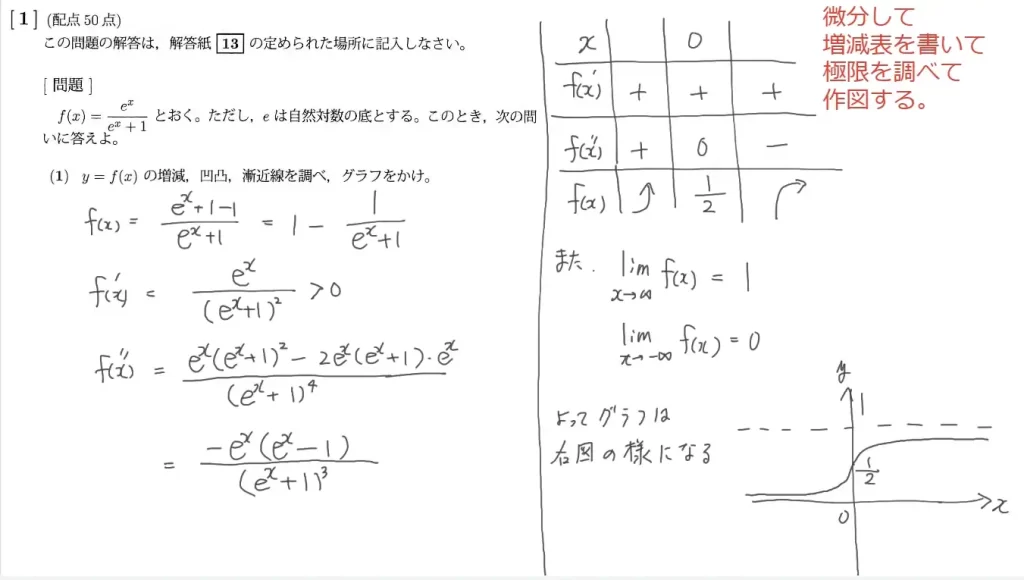 [1] (配点 50 点)
この問題の解答は,解答紙 13 の定められた場所に記入しなさい。
[ 問題 ]
f(x) = e^x/(e^x + 1) とおく。ただし,e は自然対数の底とする。このとき,次の問
いに答えよ。
(1) y = f(x) の増減,凹凸,漸近線を調べ,グラフをかけ。
f(x) = (e^x+1-1)/(e^x+1) = 1 - 1/(e^x+1)
f'(x) = e^x/(e^x+1)^2 > 0
f''(x) = (e^x(e^x+1)^2 - 2e^x(e^x+1)・e^x)/(e^x+1)^4
= -e^x(e^x-1)/(e^x+1)^3
x 0
f'(x) + + +
f''(x) + 0 -
f(x) 1/2
また.
lim x→∞ f(x) = 1
lim x→-∞ f(x) = 0
よってグラフは
右図の様になる
y
1
1/2
0
x
微分して
増減表を書いて
極限を調べて
作図する。